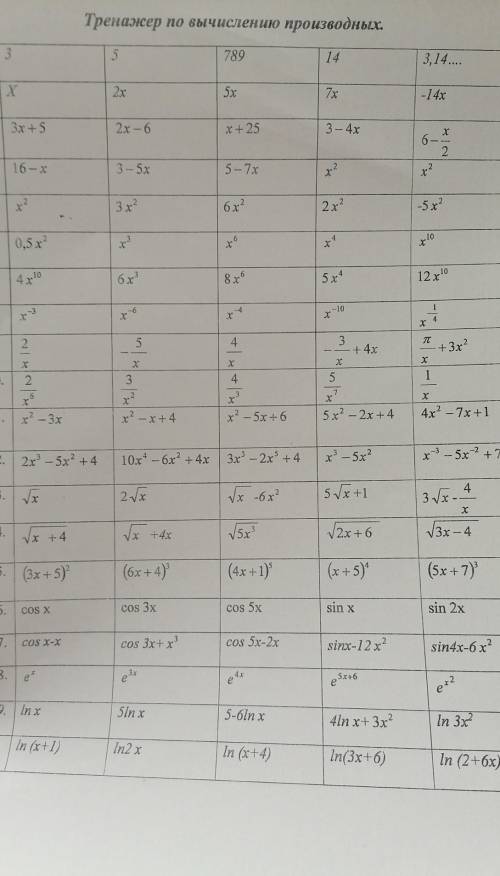 Тренажер по вычислению производных.
3 5 789 14 3,14....
X 2x 5x 7x -14x
3x+5 2x−6 x+25 3−4x 6−x/2
16−x 3−5x 5−7x x² x²
x² 3x² 6x² 2x² -5x²
0,5x² x³ x⁶ x⁴ x¹⁰
4x¹⁰ 6x³ 8x⁶ 5x⁴ 12x¹⁰
x⁻³ x⁻⁶ x⁻⁴ x⁻¹⁰ x^(1/4)
2/x −5/x 4/x −3/x+4x π/x+3x²
2/x⁶ 3/x² 4/x³ 5/x⁷ 1/x
x²−3x x²−x+4 x²−5x+6 5x²−2x+4 4x²−7x+1
2. 2x³−5x²+4 10x⁴−6x²+4x 3x³−2x⁵+4 x³−5x² x⁻³−5x⁻²+7
3. √x 2√x √x -6x² 5√x+1 3√x-4/x
4. √(x +4) √x +4x √(5x³) √(2x+6) √(3x−4)
5. (3x+5)² (6x+4)³ (4x+1)⁵ (x+5)⁴ (5x+7)³
6. cos x cos 3x cos 5x sin x sin 2x
7. cos x-x cos 3x+x³ cos 5x-2x sinx-12x² sin4x-6x²
8. eˣ e³ˣ e⁴ˣ e⁵ˣ⁺⁶ e^(x²)
9. ln x 5ln x 5-6ln x 4ln x+3x² ln 3x²
ln (x+1) ln2 x ln (x+4) ln(3x+6) ln (2+6x)